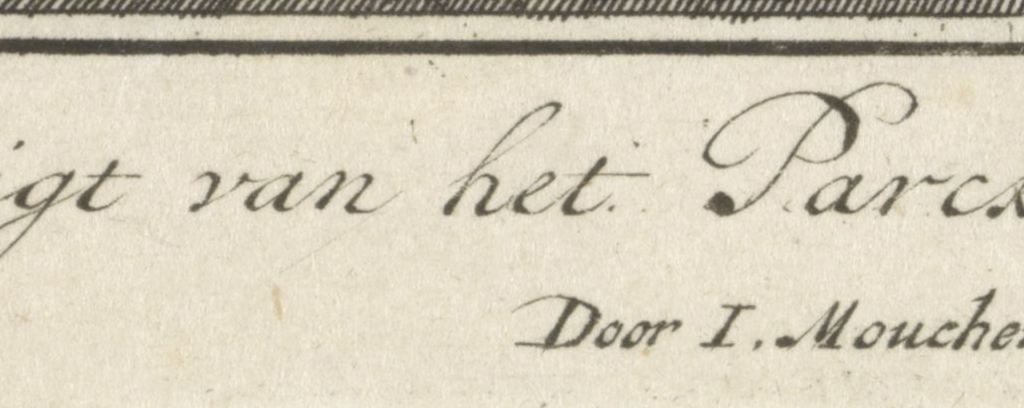 igt van het Parcx
Door I. Moucher